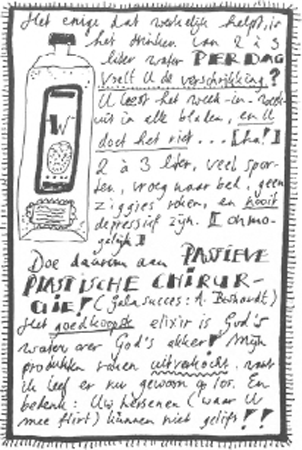 Het enige dat werkelijk helpt, is
het drinken van 2 à 3
liter water PER DAG
Voelt U de verschrikking?
U leest het week-in-week-
uit in alle bladen, en U
doet het niet... [ha!]
2 à 3 liter, veel spor-
ten, vroeg naar bed, geen
ziggies roken, en nooit
depressief zijn. [onmo-
gelijk]
Doe daarom aan PASSIEVE
PLASTISCHE CHIRUR-
GIE! (Gala succes: A.
Het goedkoopste elixir is God's
water over God's akker! Mijn
produkten raken uitverkocht, want
ik leef er nu gewoon op los. En
bedenk: Uw hersenen (waar U
mee flirt) kunnen niet gelift!!